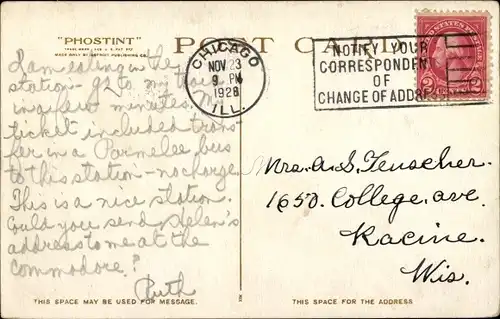 "PHOSTINT"
POST CARD
CHICAGO
NOV 23
9 PM
1928
ILL.
NOTIFY YOUR
CORRESPONDEN
OF
CHANGE OF ADDRE
I am eating in the
station - go to my train
in a few minutes. My
ticket included trans-
fer in a Parmelee bus
to this station - no charge.
This is a nice station.
Could you send Helen's
address to me at the
Commodore?
Ruth
Mrs. A. S. Teuscher.
1650. College. ave.
Racine.
Wis.
THIS SPACE MAY BE USED FOR MESSAGE.
THIS SPACE FOR THE ADDRESS